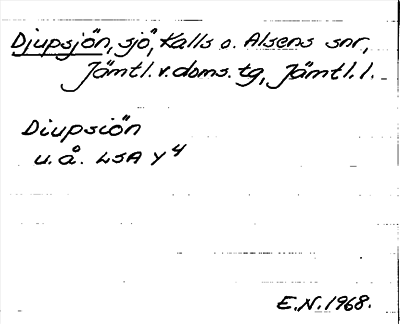 Djupsjön, sjö, Kalls o. Alsens snr,
Jämtl. v. doms. tg, Jämtl. l.
Diupsiön
u. å. LSA Y 4
E.N. 1968.